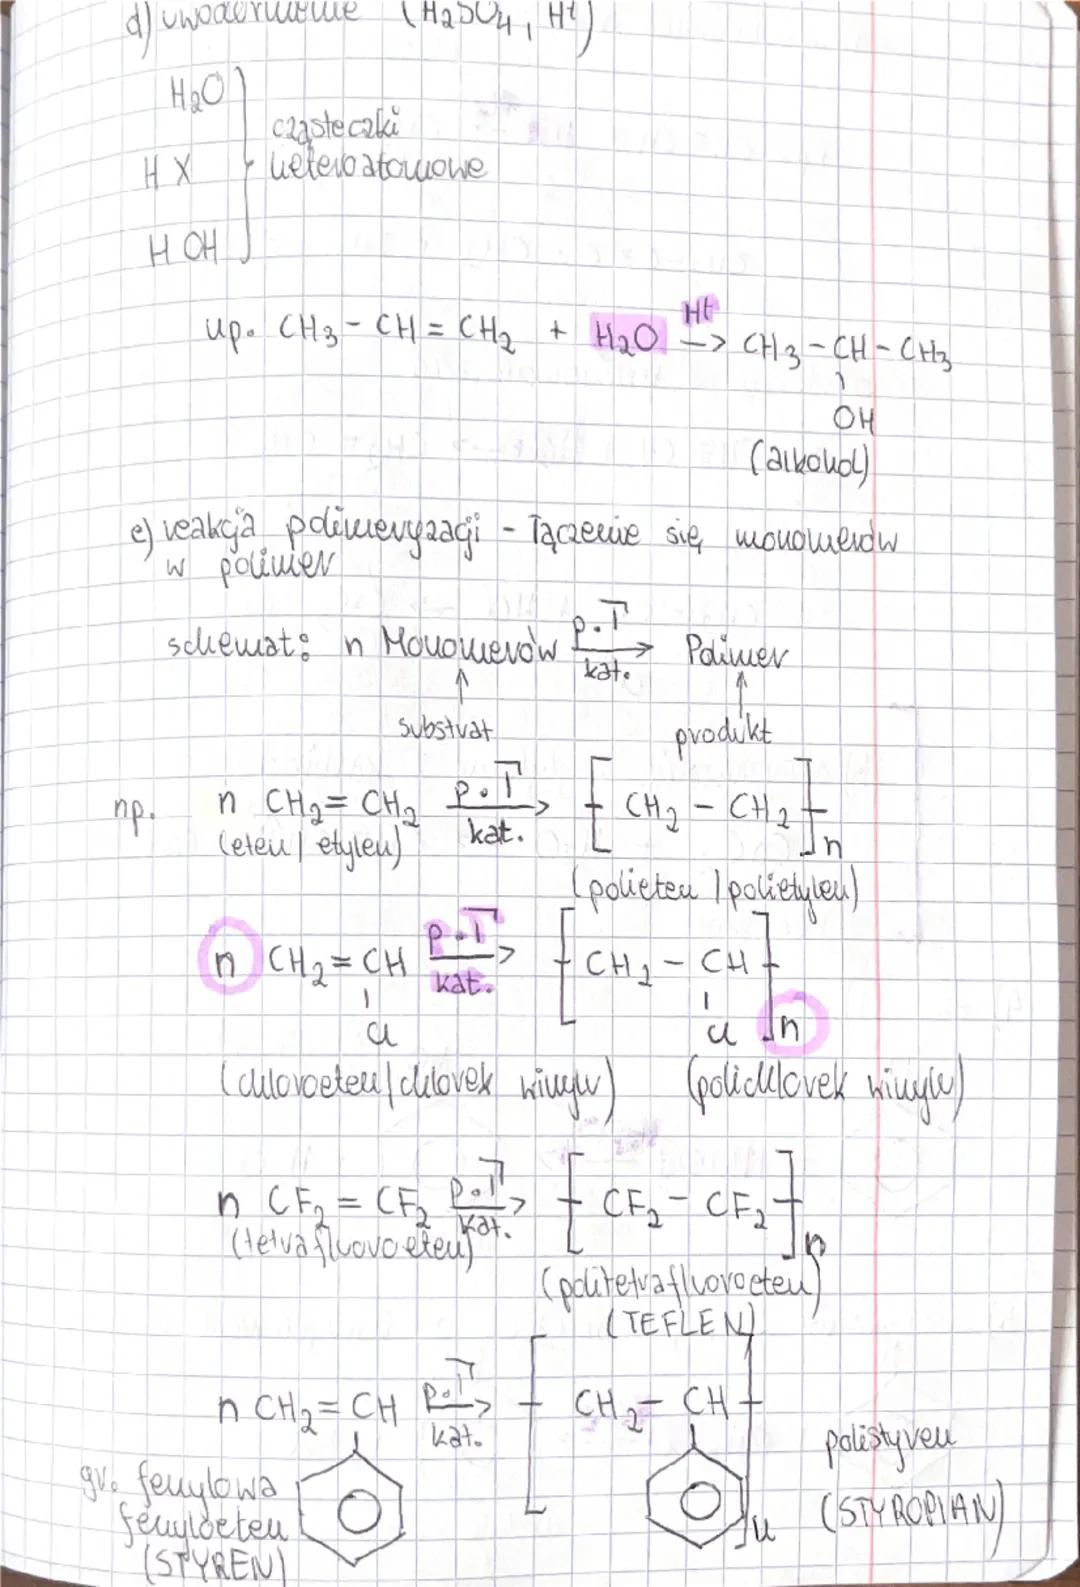 d) uwodornienie (H₂SO₄, H⁺)
H₂O
cząsteczki
HX heteroatomowe
HOH
np. CH₃ - CH = CH₂ + H₂O H⁺ -> CH₃ - CH - CH₃
OH
(alkohol)
e) reakcja polimeryzacji - łączenie się monomerów
w polimer
schemat: n Monomerów p.T kat. → Polimer
↑ ↑
substrat produkt
np. n CH₂ = CH₂ p.T kat. → [CH₂ - CH₂]n
(eten / etylen)
(polieten / polietylen)
n CH₂ = CH p.T kat. → [CH₂ - CH]n
Cl Cl
(chloroeten / chlorek winylu) (polichlorek winylu)
n CF₂ = CF₂ p.T kat. → [CF₂ - CF₂]n
(tetrafluoroeten)
(politetrafluoroeten)
(TEFLEN)
n CH₂ = CH p.T kat. → [CH₂ - CH]n
polistyren
gr. fenylowa
fenyloeten (STYROPIAN)
(STYREN)